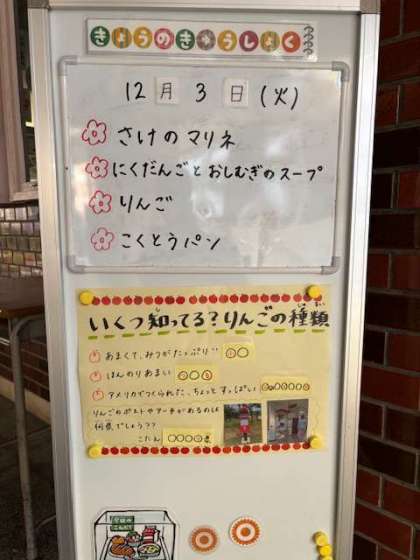 きょうのきゅうしょく
12月3日(火)
さけのマリネ
にくだんごとおしむぎのスープ
りんご
こくとうパン
いくつ知ってる?りんごの種類
あまくて、みつがたっぷり!! ○○
ほんのりあまい ○○○
アメリカでつくられた、ちょっとすっぱい
りんごのポストやアーチがあるのは
何県でしょう??
こたえ ○○○○県